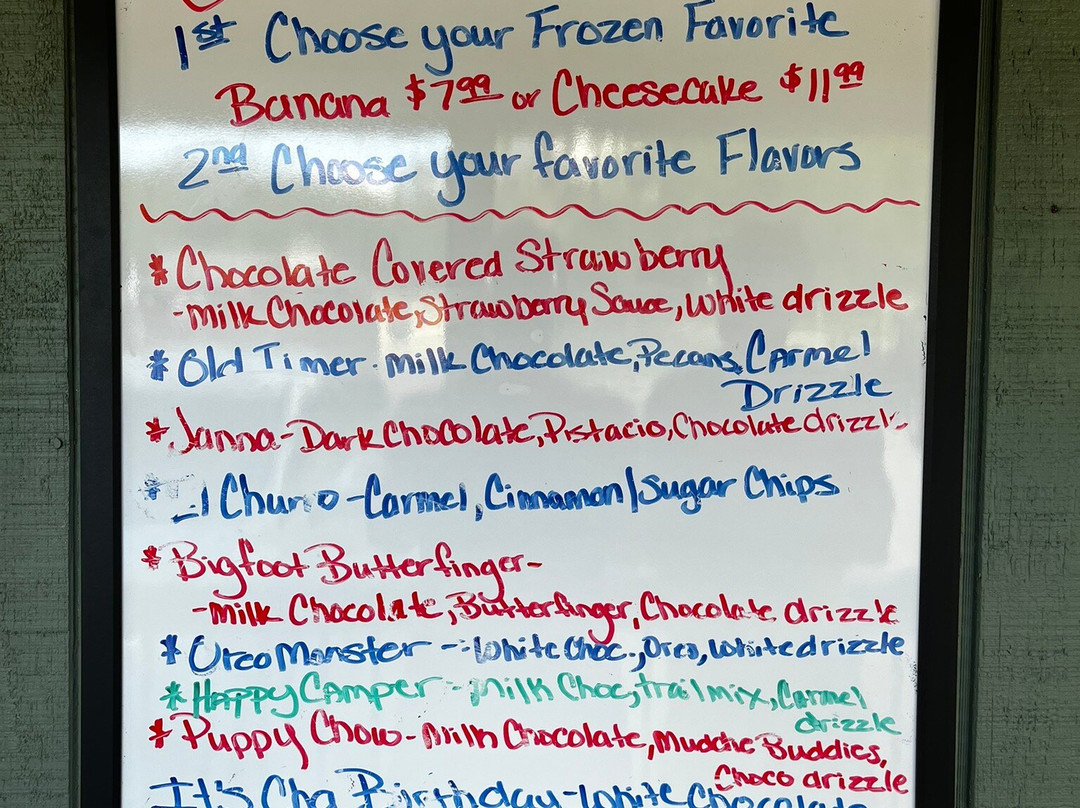 1st Choose your Frozen Favorite
Banana $7.99 or Cheesecake $11.99
2nd Choose your favorite Flavors
* Chocolate Covered Strawberry
- Milk Chocolate, Strawberry Sauce, White drizzle
* Old Timer - Milk Chocolate, Pecans, Carmel
Drizzle
* Janna - Dark Chocolate, Pistacio, Chocolate drizzle
* El Churro - Carmel, Cinnamon/sugar Chips
* Bigfoot Butterfinger -
- Milk Chocolate, Butterfinger, Chocolate drizzle
* Oreo Monster - White Choc., Oreo, White drizzle
* Happy Camper - Milk Choc, trail mix, Carmel
drizzle
* Puppy Chow - Milk Chocolate, Muddie Buddies,
Choco drizzle
It's Cha Birthday - White Chocolate